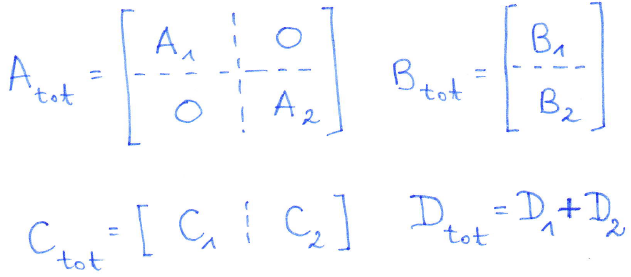 A_tot = [ A_1 ¦ 0 ; 0 ¦ A_2 ] B_tot = [ B_1 ; B_2 ]
C_tot = [ C_1 ¦ C_2 ] D_tot = D_1 + D_2